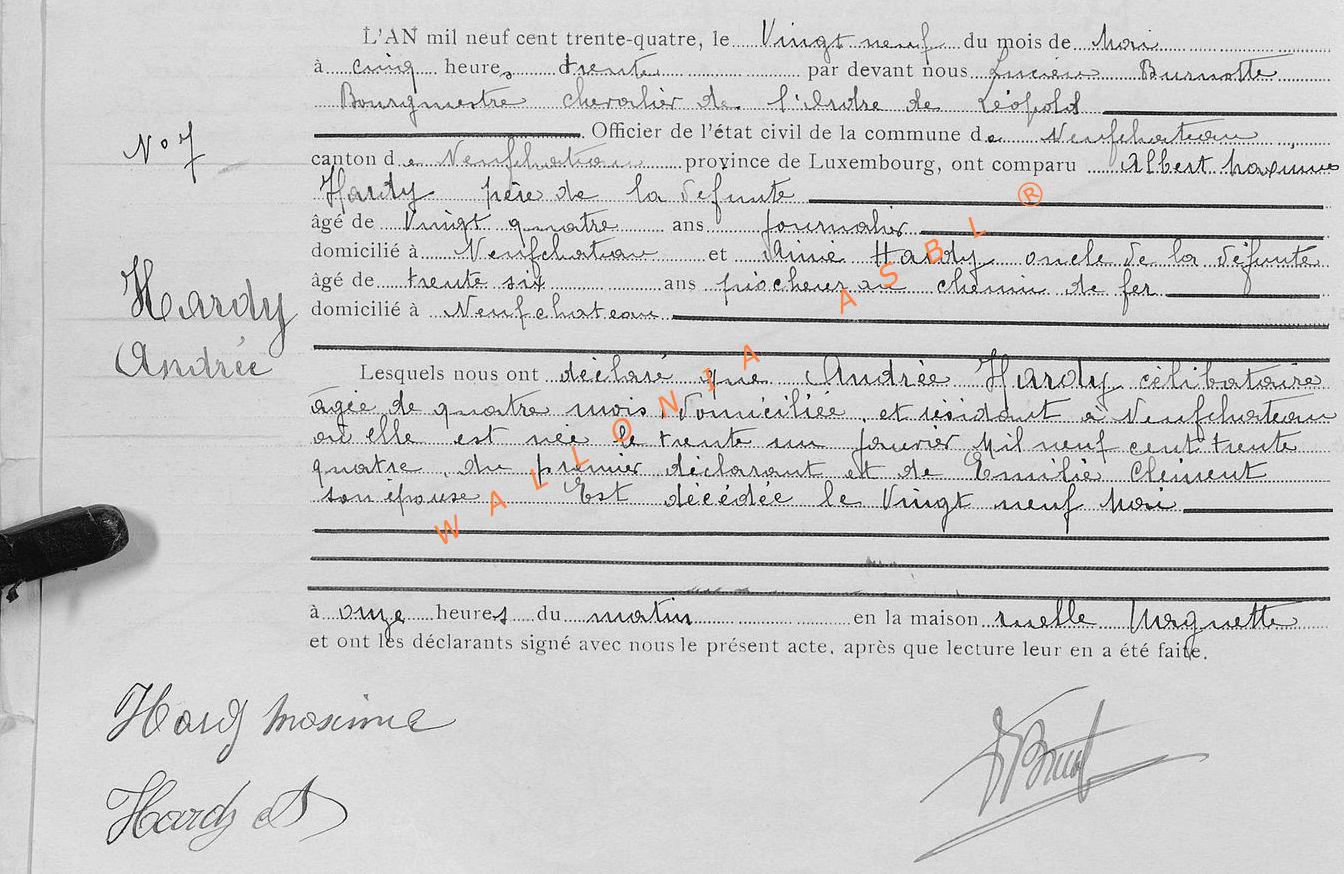 L'AN mil neuf cent trente-quatre, le Vingt neuf du mois de Mai
à cinq heures trente par devant nous Lucien Burnotte
Bourgmestre chevalier de l'Ordre de Léopold
Officier de l'état civil de la commune de Neufchateau
N° 7
canton de Neufchateau province de Luxembourg, ont comparu Albert Maximus
Hardy père de la defunte
âgé de Vingt quatre ans journalier
domicilié à Neufchateau et Aimé Hardy oncle de la défunte
âgé de trente six ans piocheur au chemin de fer
domicilié à Neufchateau
Hardy
Andrée
Lesquels nous ont déclaré que Andrée Hardy, célibataire
agée de quatre mois, domiciliée et résidant à Neufchateau
où elle est née le trente un janvier Mil neuf cent trente
quatre, du premier déclarant et de Emilie Clément
son épouse Est décédée le Vingt neuf Mai
à onze heures du matin en la maison ruelle
et ont les déclarants signé avec nous le présent acte, après que lecture leur en a été faite.
Hardy Maxime
Hardy
WALLONIA ASBL ®